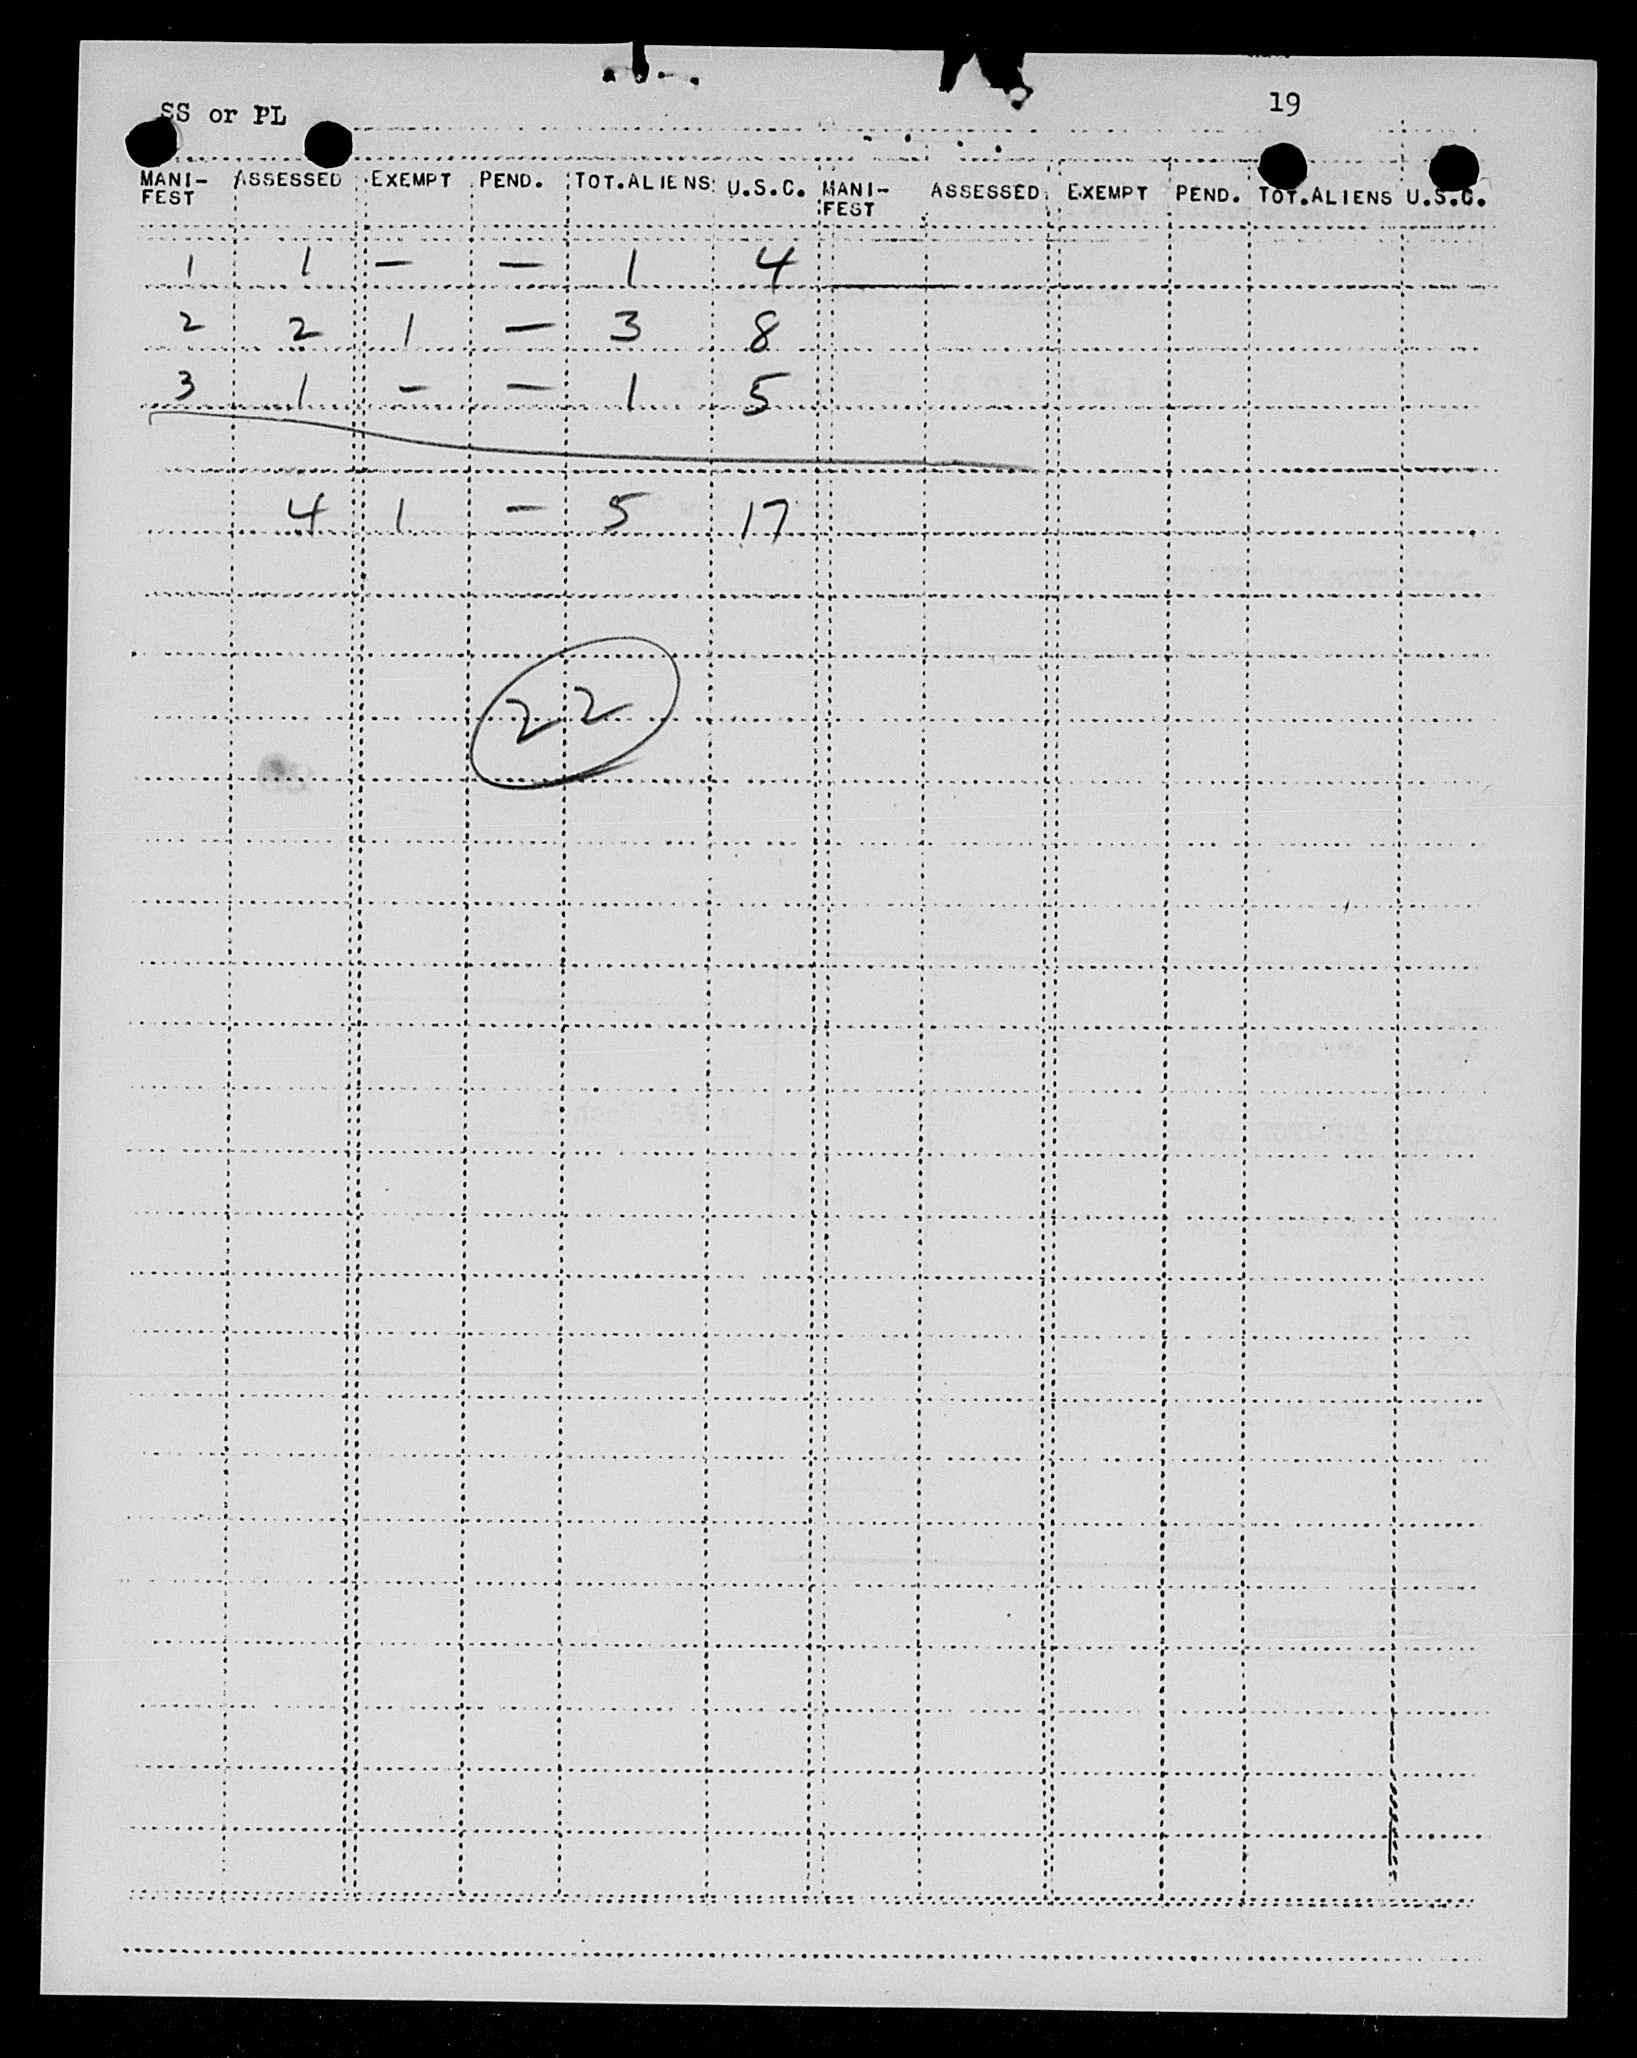 SS or PL 19
MANI- ASSESSED EXEMPT PEND. TOT.ALIENS U.S.C. MANI- ASSESSED EXEMPT PEND. TOT.ALIENS U.S.C.
FEST FEST
1 1 — — 1 4
2 2 1 — 3 8
3 1 — — 1 5
4 1 — 5 17
22